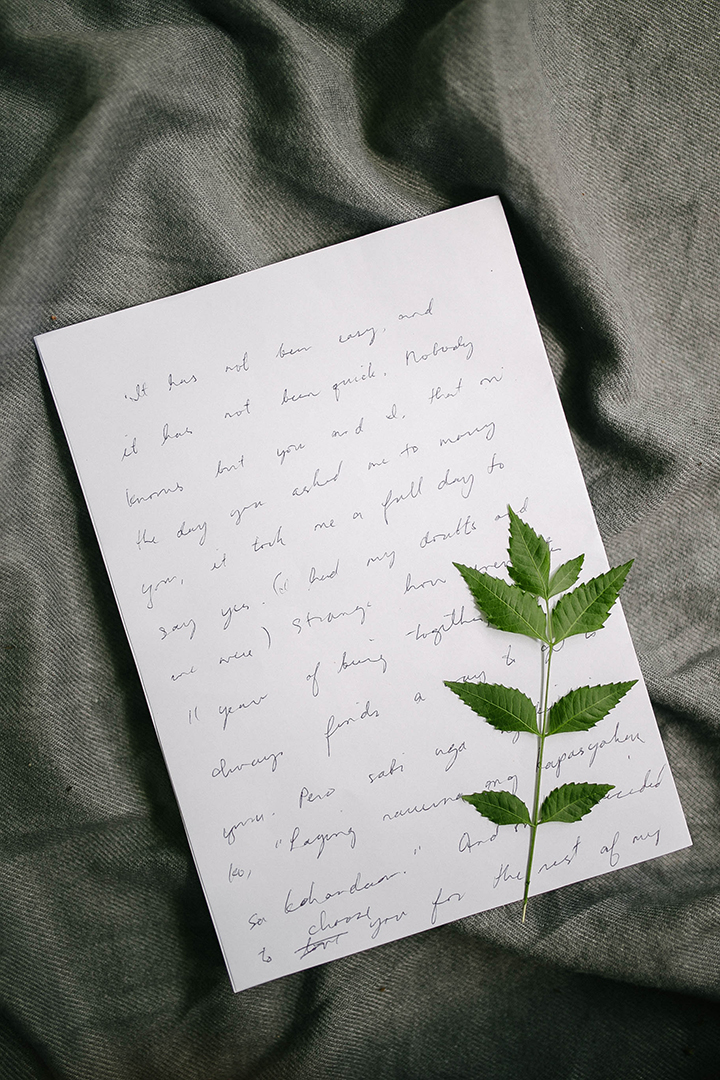 "It has not been easy, and
it has not been quick. Nobody
knows but you and I, that on
the day you asked me to marry
you, it took me a full day to
say yes. (I had my doubts and
we were) Strange how
11 years of being together
always finds a way to
you. Pero sabi nga
ko, "Laging nasa ng kapasyahan
sa kahandaan." And decided
to choose you for the rest of my